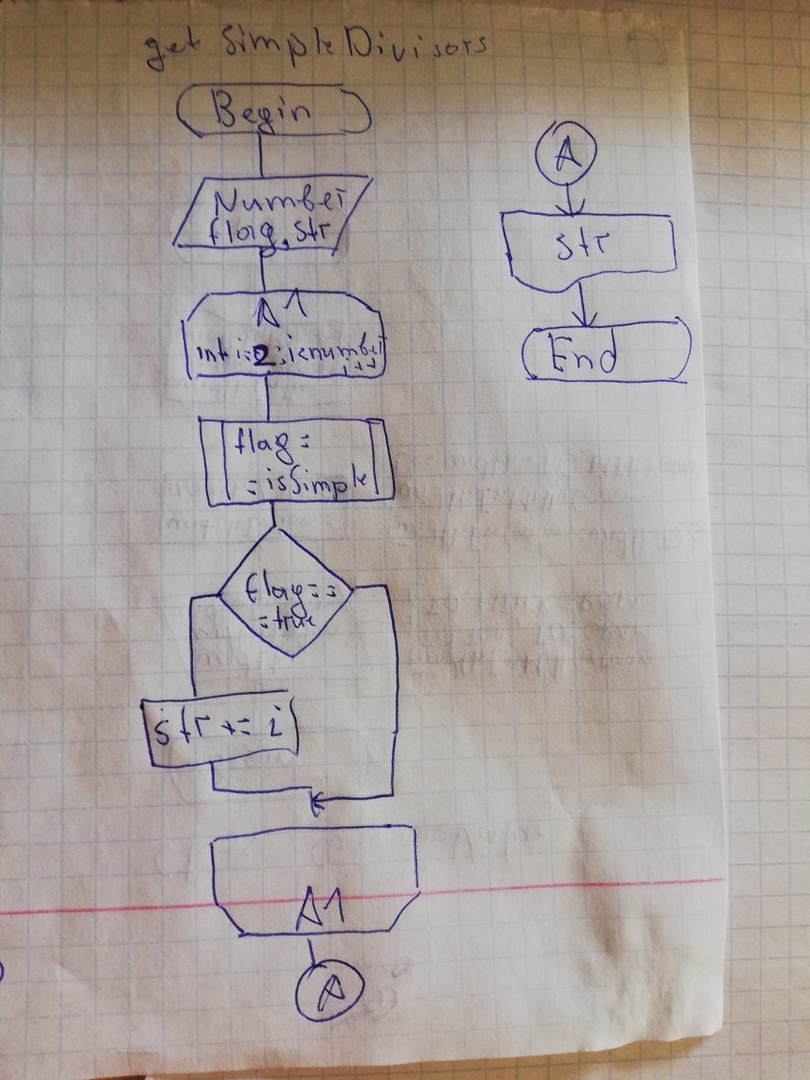 get SimpleDivisors
Begin
Number
flag, str
A1
int i=2; i<number
i++
flag =
= isSimple
flag==
=true
str += i
A1
A
A
str
End